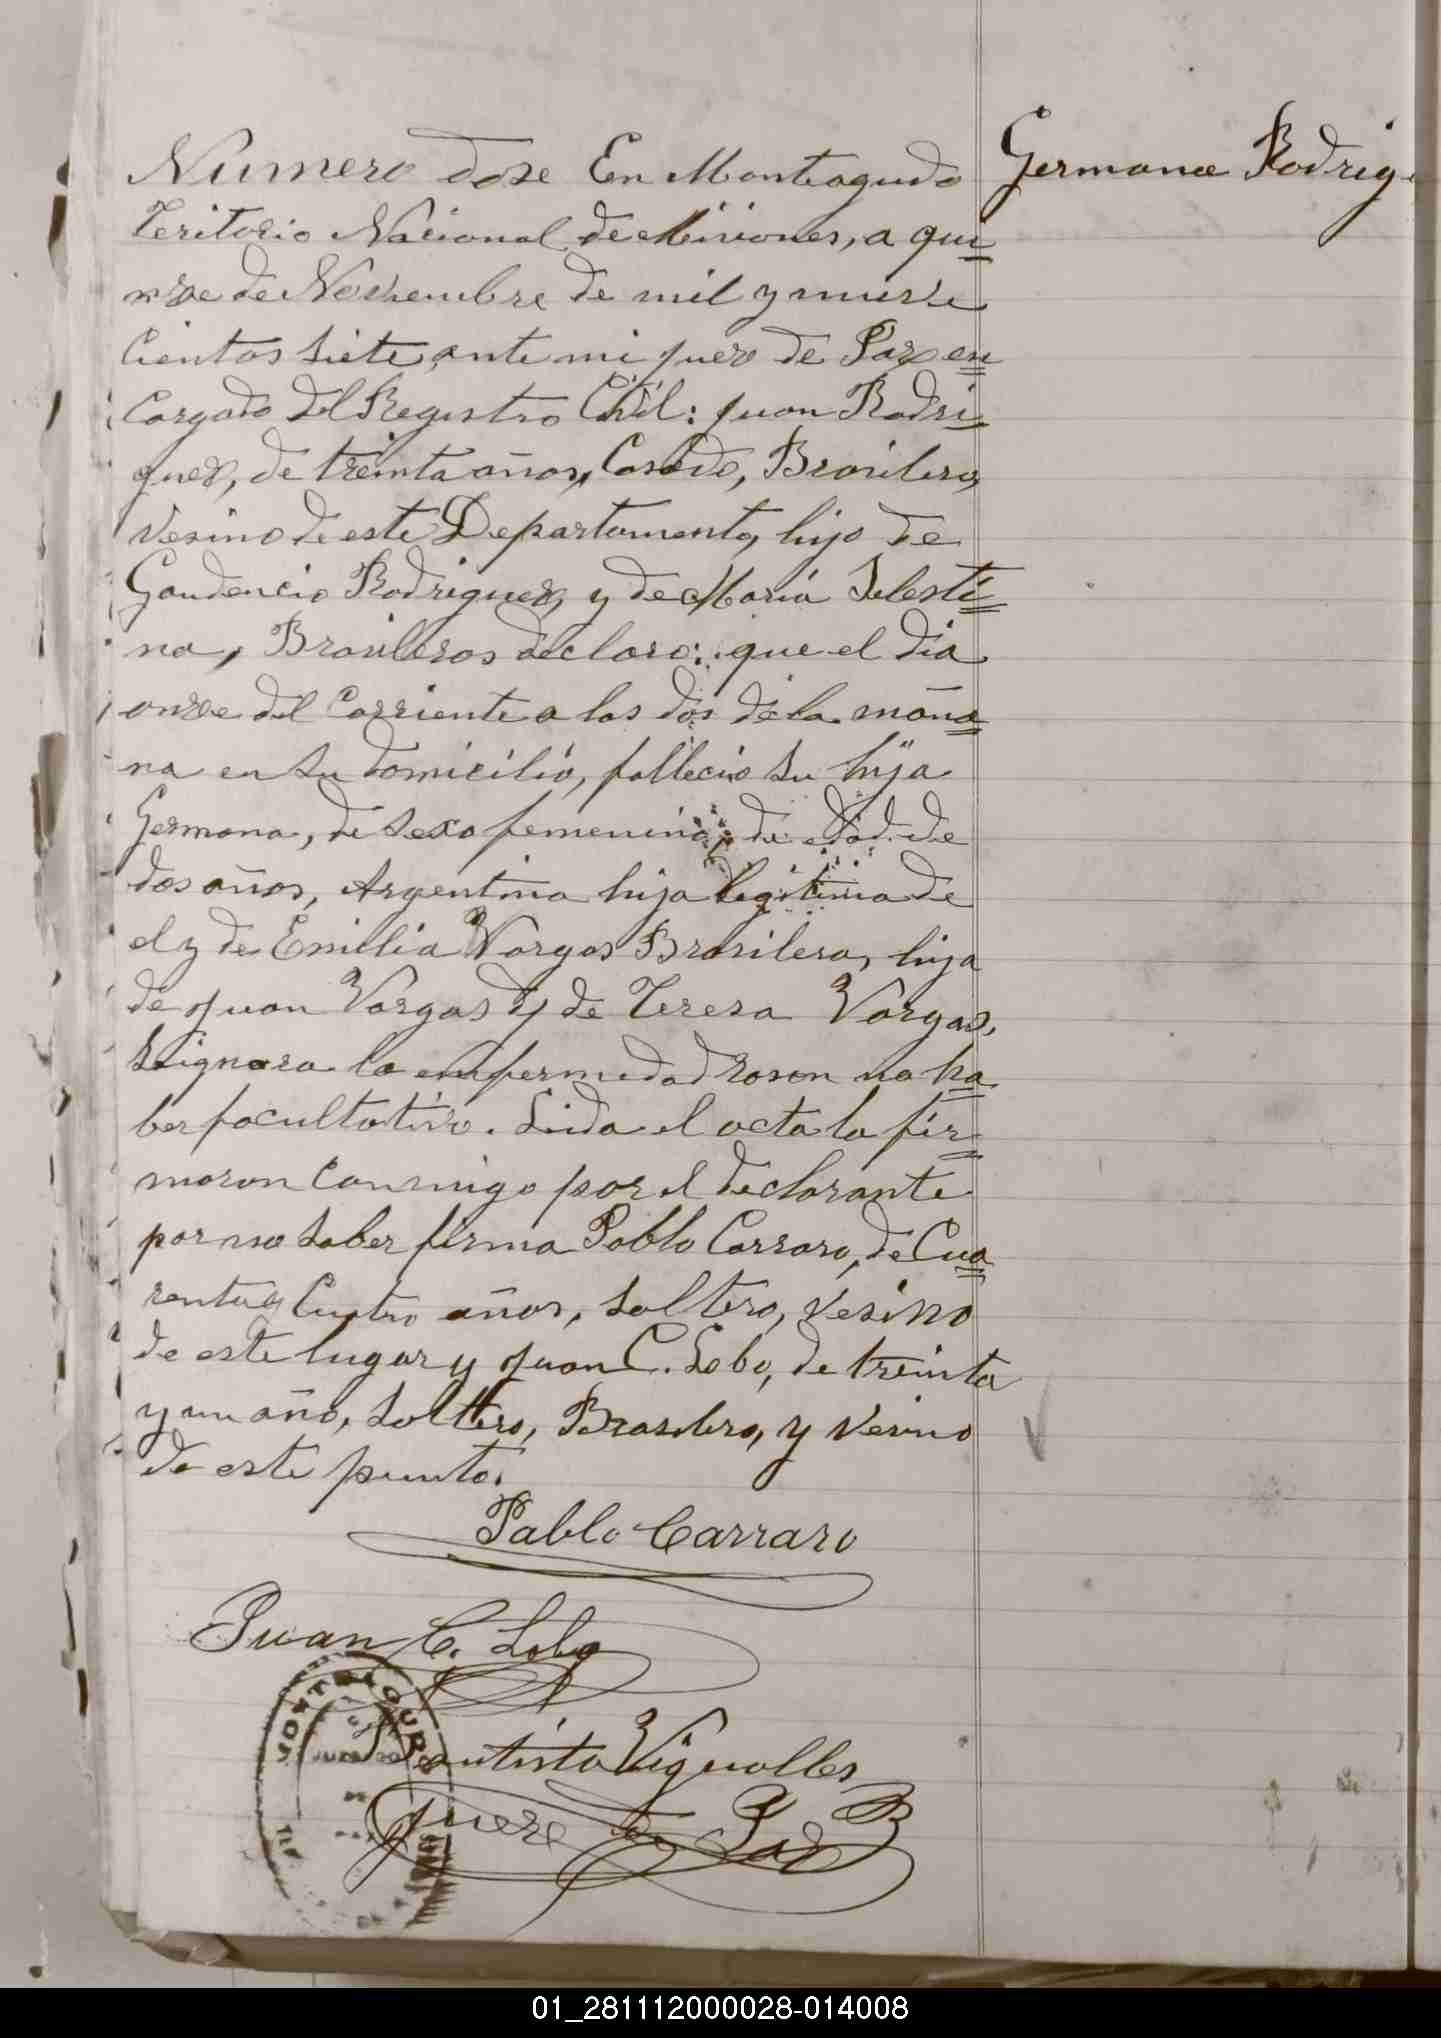 Numero dose En Monteagudo
Germana Rodrig
Teritorio Nacional de Misiones, a qui=
nse de Noviembre de mil y nueve
Cientos siete, ante mi juez de Paz en=
Cargado del Registro Civil: Juan Rodri=
guez, de treinta años, Casado, Brasilero,
Vesino de este Departamento, hijo de
Gaudencio Rodriguez, y de Maria Selesti=
na, Brasileros declaro: que el dia
onse del Corriente a las dos de la maña=
na en su domicilio, fallecio su hija
Germana, de sexo femenino, de edad de
dos años, Argentina hija legitima de
el y de Emilia Vargas Brasilera, hija
de Juan Vargas y de Teresa Vargas,
Seignora la enfermedad rason no ha=
ber facultativo. Leida el acta la fir=
maron Conmigo por el declarante
por no saber firma Pablo Carraro, de Cua=
renta y Cuatro años, soltero, vesino
de este lugar y Juan C. Lobo, de treinta
y un año, soltero, Brasilero, y vesino
de este punto.
Pablo Carraro
Juan C. Lobo
Bautista Vignolles
Juez de Paz
MONTEAGUDO
JUZGADO
01_281112000028-014008